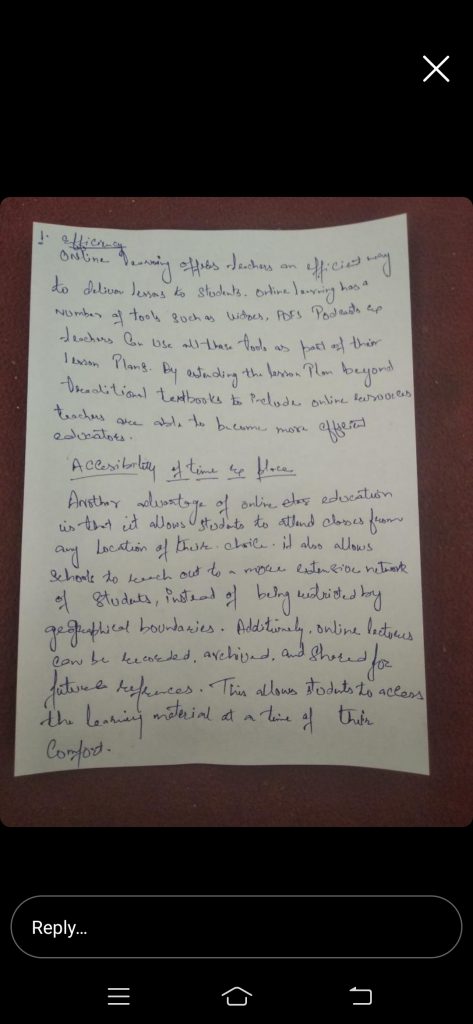 1. Efficiency
Online learning offers teachers an efficient way
to deliver lessons to students. Online learning has a
number of tools such as videos, PDFs Podcasts &
teachers can use all these tools as part of their
lesson Plans. By extending the lesson Plan beyond
traditional textbooks to include online resources
teachers are able to become more efficient
educators.
Accesibility of time & place
Another advantage of online education
is that it allows students to attend classes from
any location of their choice. it also allows
schools to reach out to a more extensive network
of students, instead of being restricted by
geographical boundaries. Additionally, online lectures
can be recorded, archived, and shared for
future refrences. This allows students to access
the learning material at a time of their
Comfort.
Reply...